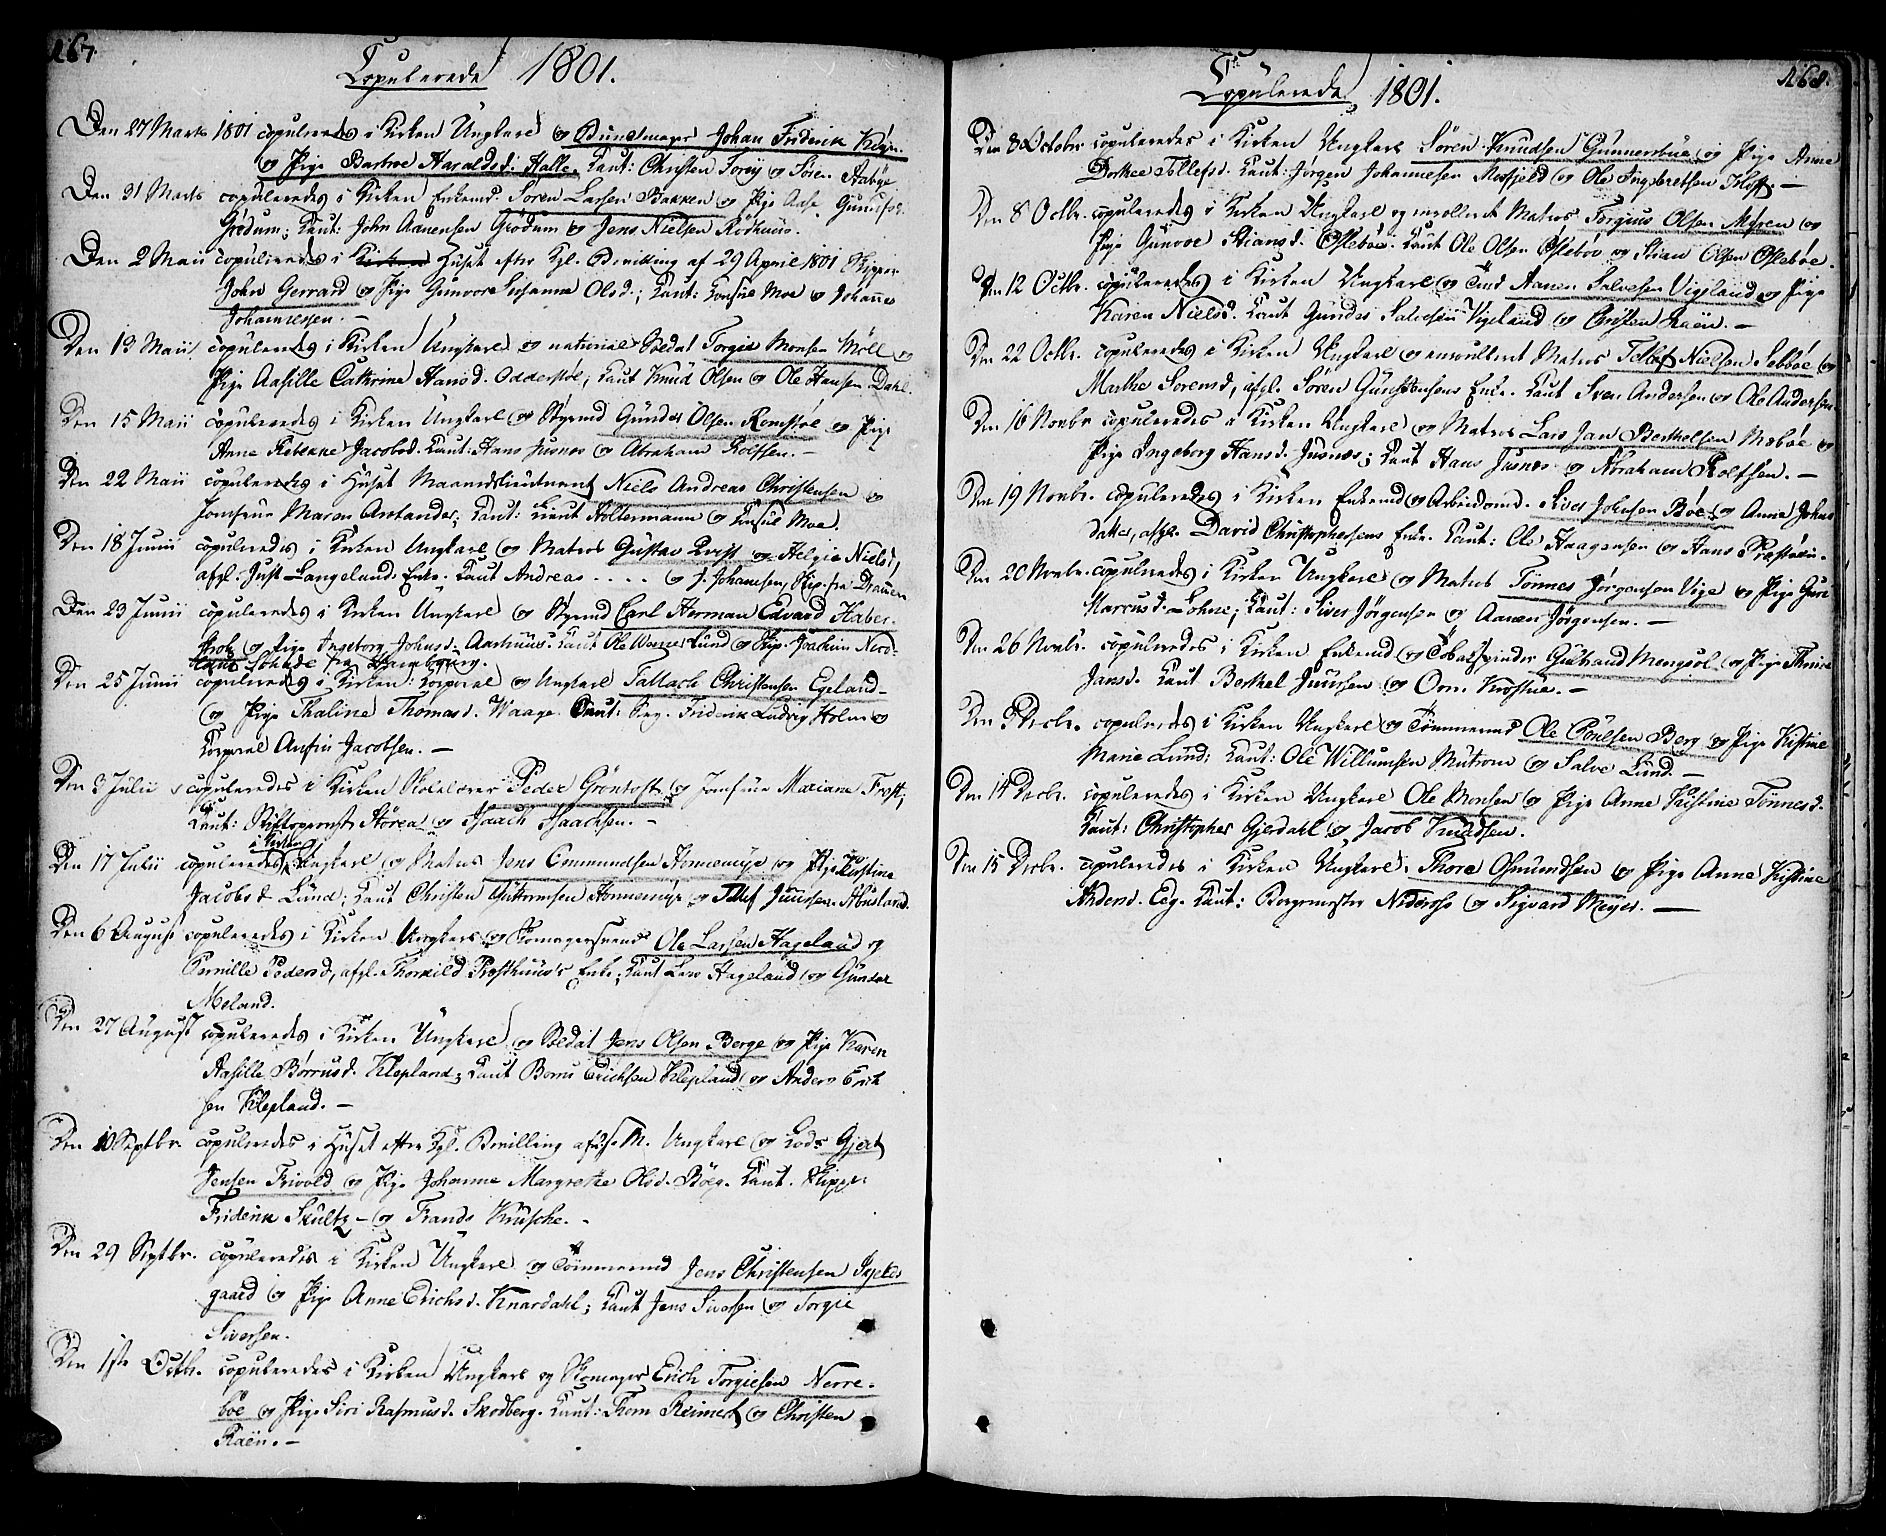 167.
Copulerede 1801.
Den 27 Marts 1801 copuleredes i Kirken Ungkarl og Bundtmager Johan Friderik Kőhn.
og Pige Barbroe Haraldsd. Halle. Caut: Christen Torøy og Søren Aabye
Den 31 Marts copuleredes i Kirken Enkemd. Søren Larsen Bakken og Pige Aase Gundersd.
Grødum; Caut: John Aanensen Grødum og Jens Nielsen Rødhuus.
Den 2 Maii copuleredes i Huset efter Kgl. Bevilling af 29 April 1801 Skipper
John Gerrard og Pige Gunvor Susanna Olsd.; Caut: Consul Moe og Johannes
Johannessen. -
Den 13 Maii copuleredes i Kirken Ungkarl og national Soldat Torgie Monsen Møll og
Pige Aasille Cathrine Hansd. Odderstøl; Caut Knud Olsen og Ole Hansen Dahl.
Den 15 Maii copuleredes i Kirken Ungkarl og Styrmd Gunder Olsen Romstøl og Pige
Anne Rebekke Jacobsd. Caut: Hans Jusnes og Abraham Rolfsen. -
Den 22 Maii copuleredes i Huset Maanedslieutnant Niels Andreas Christensen og
Jomfrue Maren Arctander; Caut: Lieut Holtermann og Consul Moe.
Den 18 Junii copuleredes i Kirken Ungkarl og Matros Gustav Qvist og Helgie Nielsd,
afgl. Just Langeland Enke. Caut Andreas . . . . og J. Johannesen, Skip. fra Drammen
Den 23 Junii copuleredes i Kirken Ungkarl og Styrmd Carl Herman Edvard Haber-
stroh og Pige Ingeborg Johnsd. Aarhuus. Caut Ole Werner Lund og Skip. Joachim Nico-
laus Lohhde fra Hamborg.
Den 25 Junii copuleredes i Kirken: Korporal og Ungkarl Tallach Christensen Egeland-
og Pige Thaline Thomasd. Waage. Caut: Serg. Friderik Ludvig Holm og
Korporal Anfin Jacobsen. -
Den 3 Julii copuleredes i Kirken Skolelærer Peder Grøntoft og Jomfrue Mariane Frost;
Caut: Stiftsprovst Støren og Isaach Isaachsen. -
i Kirken
Den 17 Julii copuleredes Ungkarl og Matros Jens Ommundsen Homemyr og Pige Kirstine
Jacobsd Lund; Caut Christen Guttormsen Homemyr og Tellef Juursen Abusland.
Den 6 August copuleredes i Kirken Ungkarl og Skomagersvend Ole Larsen Hageland og
Pernille Pedersd, afgl. Thorkild Prosthuus's Enke; Caut Lars Hageland og Gunder
Meland.
Den 27 August copuleredes i Kirken Ungkarl og Soldat Jens Olsen Berge og Pige Karen
Aasille Børrusd. Klepland; Caut Børru Erichsen Klepland og Anders Erich
sen Klepland. -
Den 10 Septbr. copuleredes i Huset efter Kgl. Bevilling af 3 s. M. Ungkarl og Lods Gjert
Jensen Frivold og Pige Johanne Margrethe Olsd. Bøeg. Caut. Skipper
Friderik Skultz - og Frands Krusche. -
Den 29 Septbr. copuleredes i Kirken Ungkarl og Tømmermd Jens Christensen Skjelds
gaard og Pige Anne Erichsd. Knardahl; Caut Jens Siversen og Torgie
Siversen.
Den 1ste Octbr. copuleredes i Kirken Ungkarl og Skomager Erich Torgiesen Nerre-
bøe og Pige Siri Rasmusd. Skodberg. Caut: Thom Reimert og Christen
Raen. -
168.
Copulerede 1801.
Den 8 Octobr copuleredes i Kirken Ungkarl Søren Knudsen Gunnersbue og Pige Anne
Dorthe Tellefsd. Caut: Jørgen Johannesen Mosfjeld og Ole Ingebretsen Kloff. -
Den 8 Octbr. copuleredes i Kirken Ungkarl og enrolleret Matros Torgius Olsen Myren og
Pige Gunvor Stiansd. Oslebøe. Caut Ole Olsen Oslebøe og Stian Olsen Oslebøe.
Den 12 Octbr. copuleredes i Kirken Ungkarl og Aanen Salvesen Vigeland og Pige
Karen Nielsd. Caut Gunder Salvesen Vigeland og Christen Raen. -
Den 22 Octbr. copuleredes i Kirken Ungkarl og enrolleret Matros Tellef Nielsen Sebbøe og
Marthe Sørensd, afgl. Søren Gundersens Enke. Caut Sven Andersen og Ole Andersen.
Den 16 Novbr copuleredes i Kirken Ungkarl og Matros Lars Jan Berthelsen Næbøe og
Pige Ingeborg Hansd. Jusnæs; Caut Hans Jusnæs og Abraham Rolfsen. -
Den 19 Novbr. copuleredes i Kirken Enkemd og Arbeidsmd. Siver Johnsen Bøe og Anne Johns
datter, afgl. David Christophersens Enke. Caut: Ole Haagensen og Hans Præstøen.
Den 20 Novbr. copuleredes i Kirken Ungkarl og Matros Tønnes Jørgensen Vige og Pige Guri
Marcusd. Lohne; Caut: Siver Jørgensen og Aanen Jørgensen. -
Den 26 Novbr. copuleredes i Kirken Enkemd og Tobakspinder Gulbrand Mengsøl og Pige Thrine
Jansd. Caut Berthel Juursen og Om. Krostue. -
Den 3 Decbr. copuleredes i Kirken Ungkarl og Tømmermd Ole Poulsen Berg og Pige Kistine
Marie Lund; Caut: Ole Willumsen Mutrom og Salve Lund. -
Den 14 Decbr. copuleredes i Kirken Ungkarl Ole Monsen og Pige Anne Kistine Tønnesd.
Caut: Christopher Gjerdahl og Jacob Knudsen.
Den 15 Decbr. copuleredes i Kirken Ungkarl Thore Osmundsen og Pige Anne Kistine
Andersd. Eeg. Caut: Borgemester Nideross og Sigvard Meyer. -